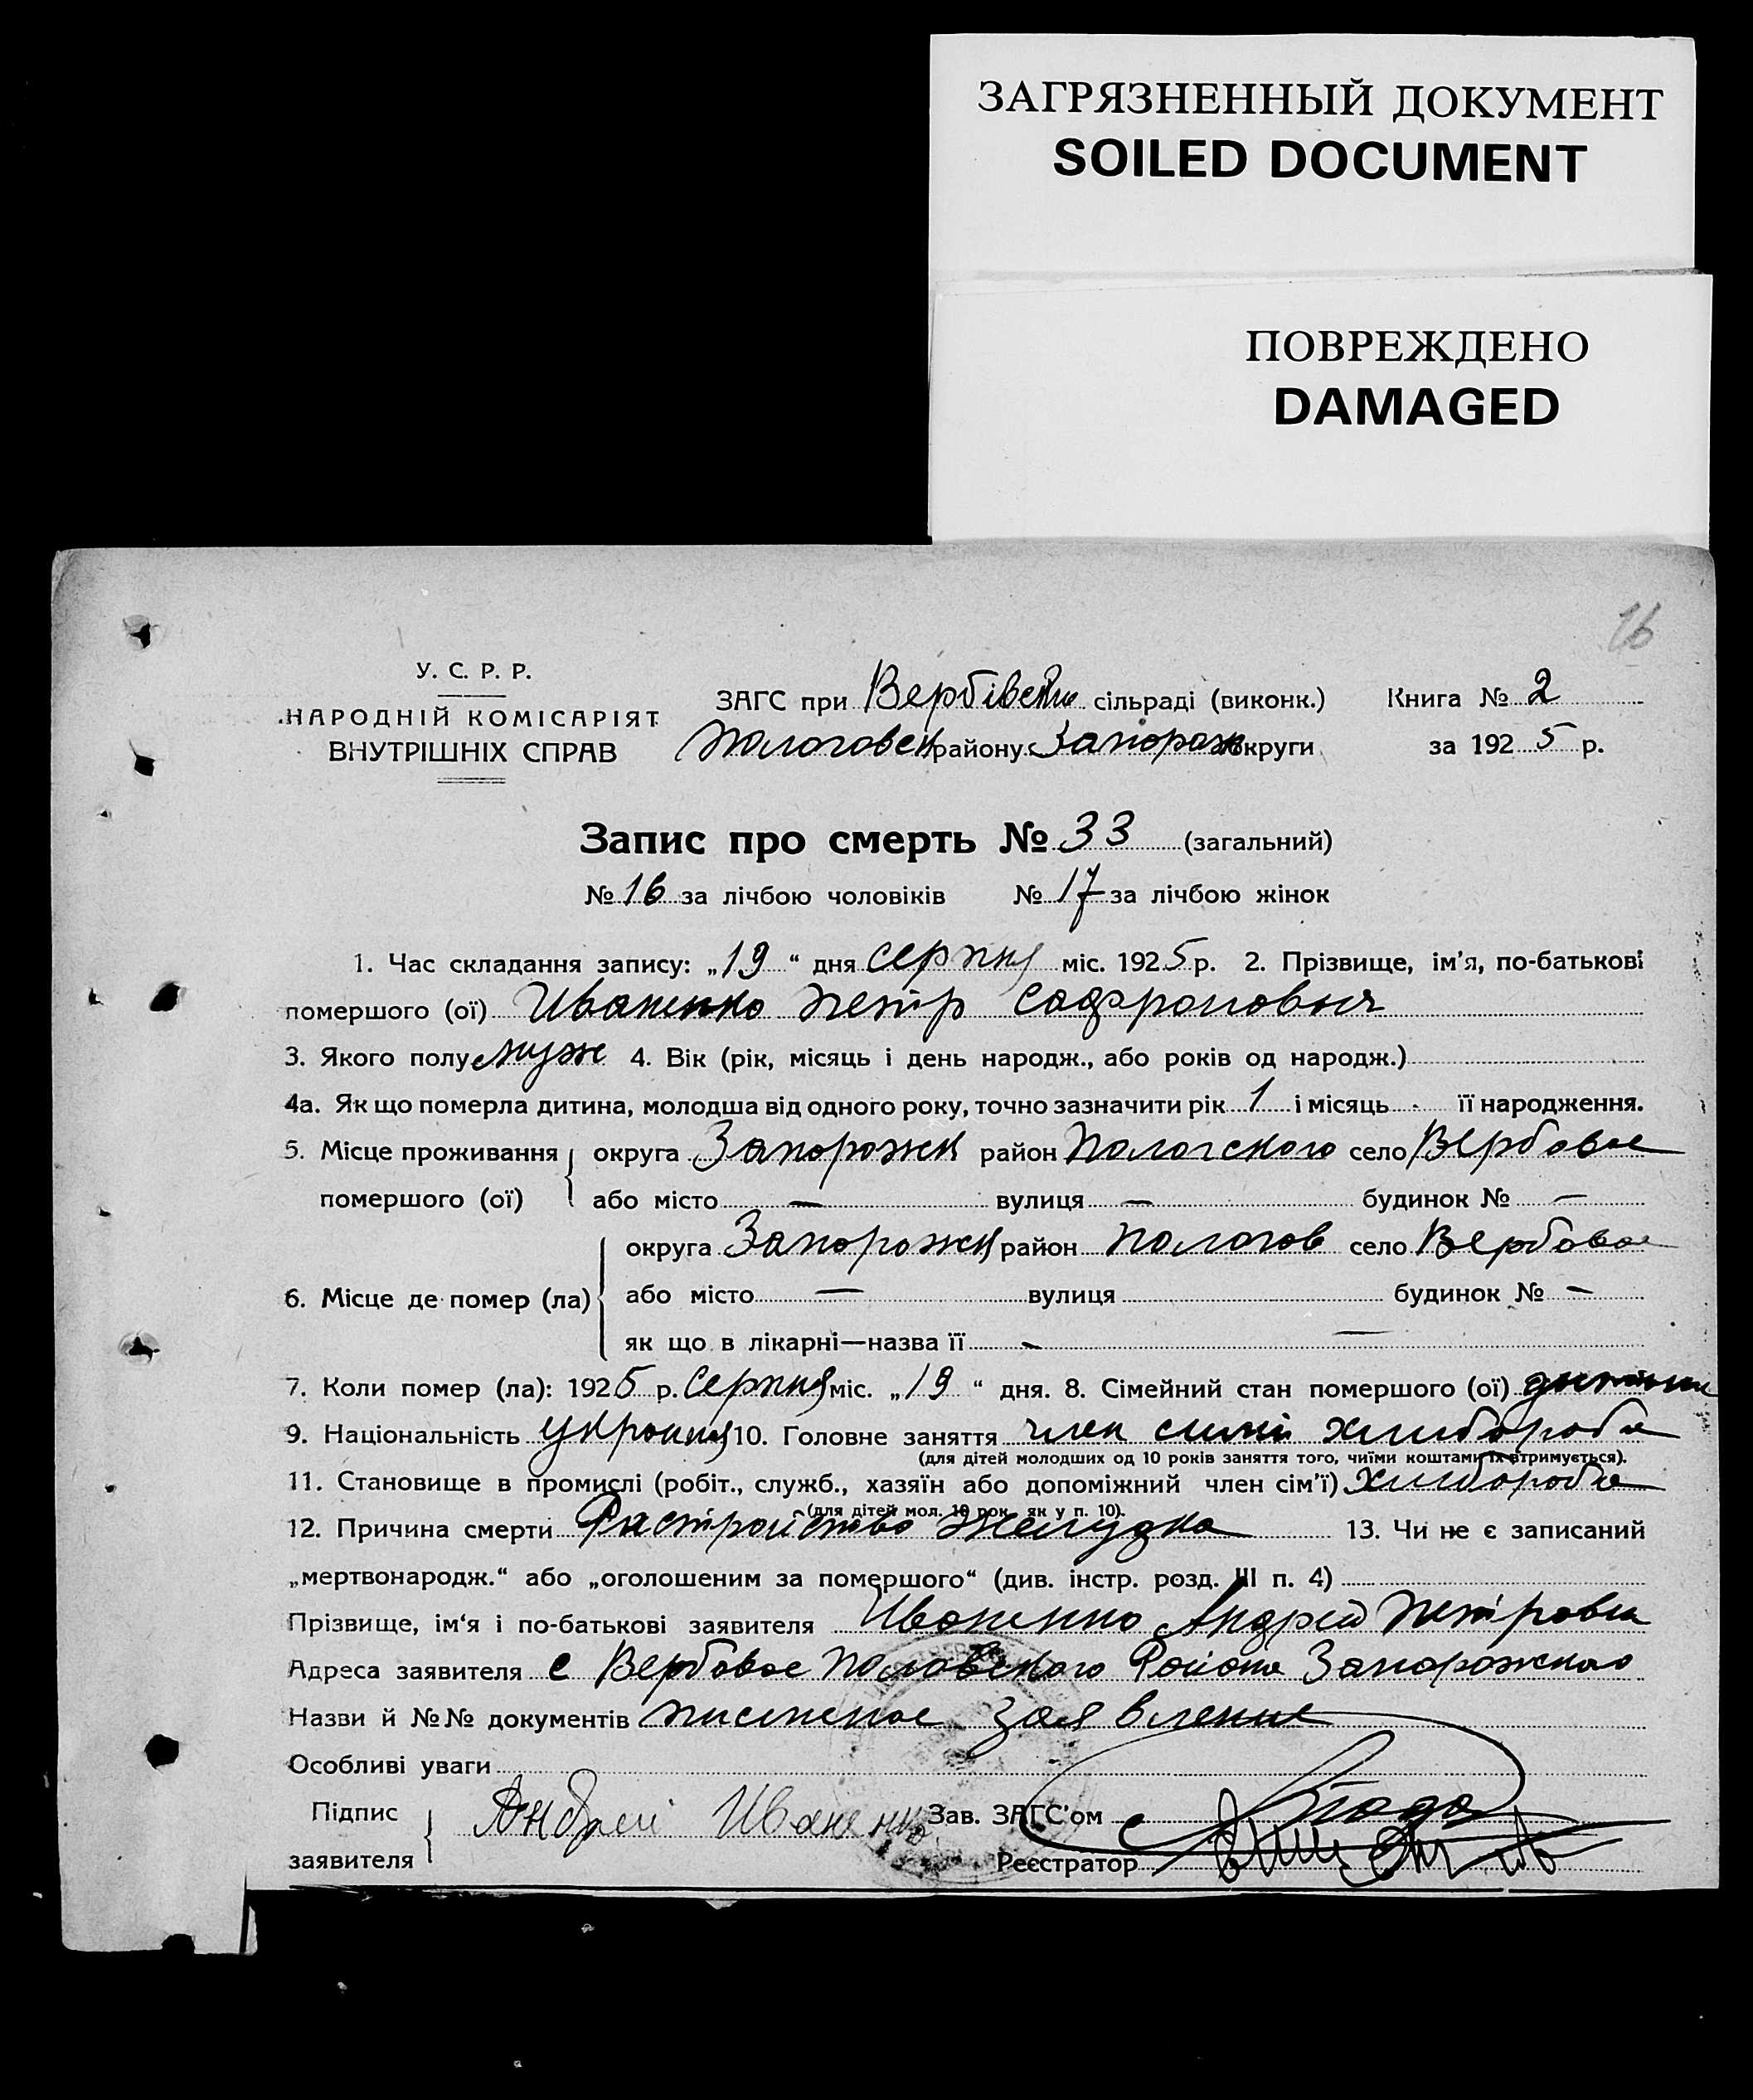 ЗАГРЯЗНЕННЫЙ ДОКУМЕНТ
SOILED DOCUMENT
ПОВРЕЖДЕНО
DAMAGED
16
У. С. Р. Р.
НАРОДНІЙ КОМІСАРІЯТ
ВНУТРІШНІХ СПРАВ
ЗАГС при Вербівські сільраді (виконк.) Книга № 2
Пологовск району Запорож округи за 1925 р.
Запис про смерть № 33 (загальний)
№ 16 за лічбою чоловіків № 17 за лічбою жінок
1. Час складання запису: „19“ дня серпня міс. 1925 р. 2. Прізвище, ім'я, по-батькові
помершого (ої) Иваненко Петр Софронович
3. Якого полу муж 4. Вік (рік, місяць і день народж., або років од народж.)
4а. Як що померла дитина, молодша від одного року, точно зазначити рік 1 і місяць - її народження.
5. Місце проживання помершого (ої) округа Запорожск район Пологского село Вербовое
або місто — вулиця — будинок № —
6. Місце де помер (ла) округа Запорожск район Пологов село Вербовое
або місто — вулиця будинок № —
як що в лікарні—назва її - —
7. Коли помер (ла): 1925 р. Серпня міс. „19“ дня. 8. Сімейний стан помершого (ої) дитина
9. Національність україн 10. Головне заняття член сімї хлибороба
(для дітей молодших од 10 років заняття того, чиїми коштами їх втримується).
11. Становище в промислі (робіт., служб., хазяїн або допоміжний член сім'ї) хлибороба
(для дітей мол. 10 рок. як у п. 10).
12. Причина смерти Растройство Желудка 13. Чи не є записаний
„мертвонародж.“ або „оголошеним за помершого“ (див. інстр. розд. III п. 4)
Прізвище, ім'я і по-батькові заявителя Иваненко Андрей Петрович
Адреса заявителя с Вербовое Района Запорожского
Назви й №№ документів письменое заявление
Особливі уваги
Підпис заявителя Андрей Иваненко Зав. ЗАГС'ом
Реєстратор